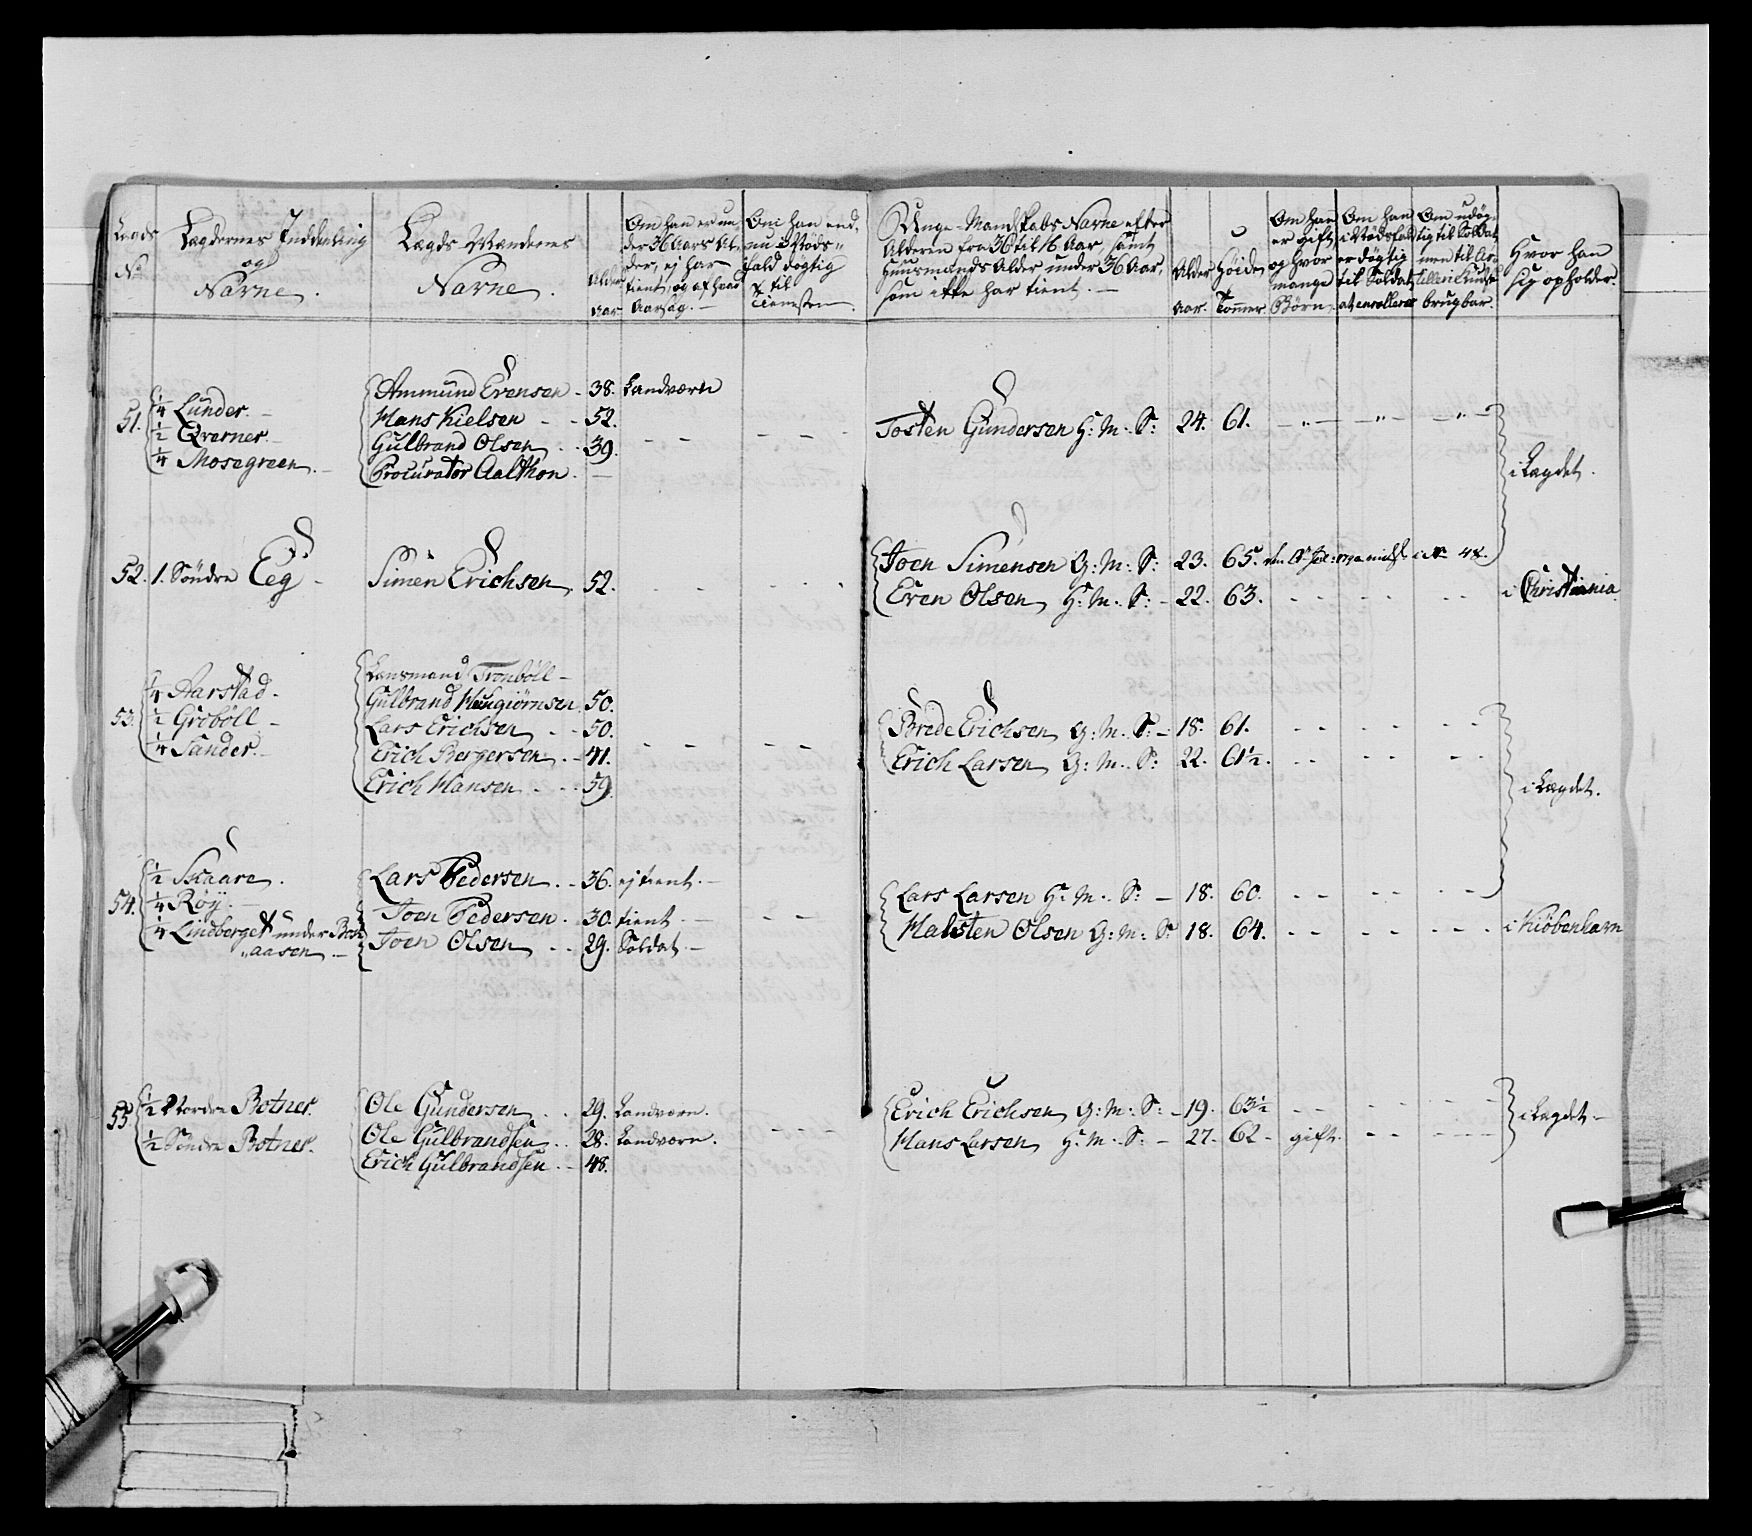 Lægds
No
Lægdernes Inddeeling
og
Navne.
Lægds Mændenes
Navne.
Alder
Aar
Om han er un-
der 36 Aars Al-
der, ej har
tient, og af hvad
Aarsag.
Om han end-
nu i Nøds-
fald døgtig
til
Tienesten.
Unge-Mandskabs Navne efter
Alderen fra 36 til 16 Aar, samt
Huusmands Alder under 36 Aar,
som ikke har tient.
Alder
Aar.
Høide
Tommer.
Om han
er gift
og hvor
mange
Børn.
Om han
i Nødsfald
er døgtig
til Soldat
at enrollere
Om udøg-
tig til Soldat
men til
brugbar.
Hvor han
sig opholder.
51. 1/4 Lunder.
1/2 Qverner
1/4 Mosegreen.
Ammund Evensen - 38. Landværn
Hans Nielsen - - 52.
Gulbrand Olsen - - 39.
Procurator Aalthon. -
Tosten Gundersen H: M: S: 24. 61. - " - " - " -
i Lægdet.
52. 1. Søndre Eeg -
Simen Erichsen 52.
Joen Simensen G: M: S: 23. 65. 48.
Even Olsen H: M: S: - 22. 63. i Christiania
53. 1/4 Aarstad.
1/2 Grøbøll -
1/4 Sander.
Lænsmand Tronbøll -
Gulbrand 50.
Lars Erichsen - - 50.
Erich Bergersen. - 41.
Erich Hansen - - - 59.
Brede Erichsen G: M: S: - 18. 61.
Erich Larsen G: M: S: 22. 61 1/2.
i Lægdet.
54. 1/2 Skaare.
1/4 Røÿ. -
1/4 Lindberget under
aasen -
Lars Pedersen. - 36. ej tient. -
Joen Pedersen. 30. tient. -
Joen Olsen - - 29. Soldat -
Lars Larsen H: M: S: - 18. 60.
Halsten Olsen G: M: S: 18. 64. i Kiøbenhavn
55 1/2 Nordre Botner.
1/2 Søndre Botner.
Ole Gundersen - - 29. Landværn.
Ole Gulbrandsen. - 28. Landværn.
Erich Gulbrandsen. - 48.
Erich Erichsen G: M: S: - 19. 63 1/2
Hans Larsen H: M: S: - 27. 62 - gift.
i Lægdet -